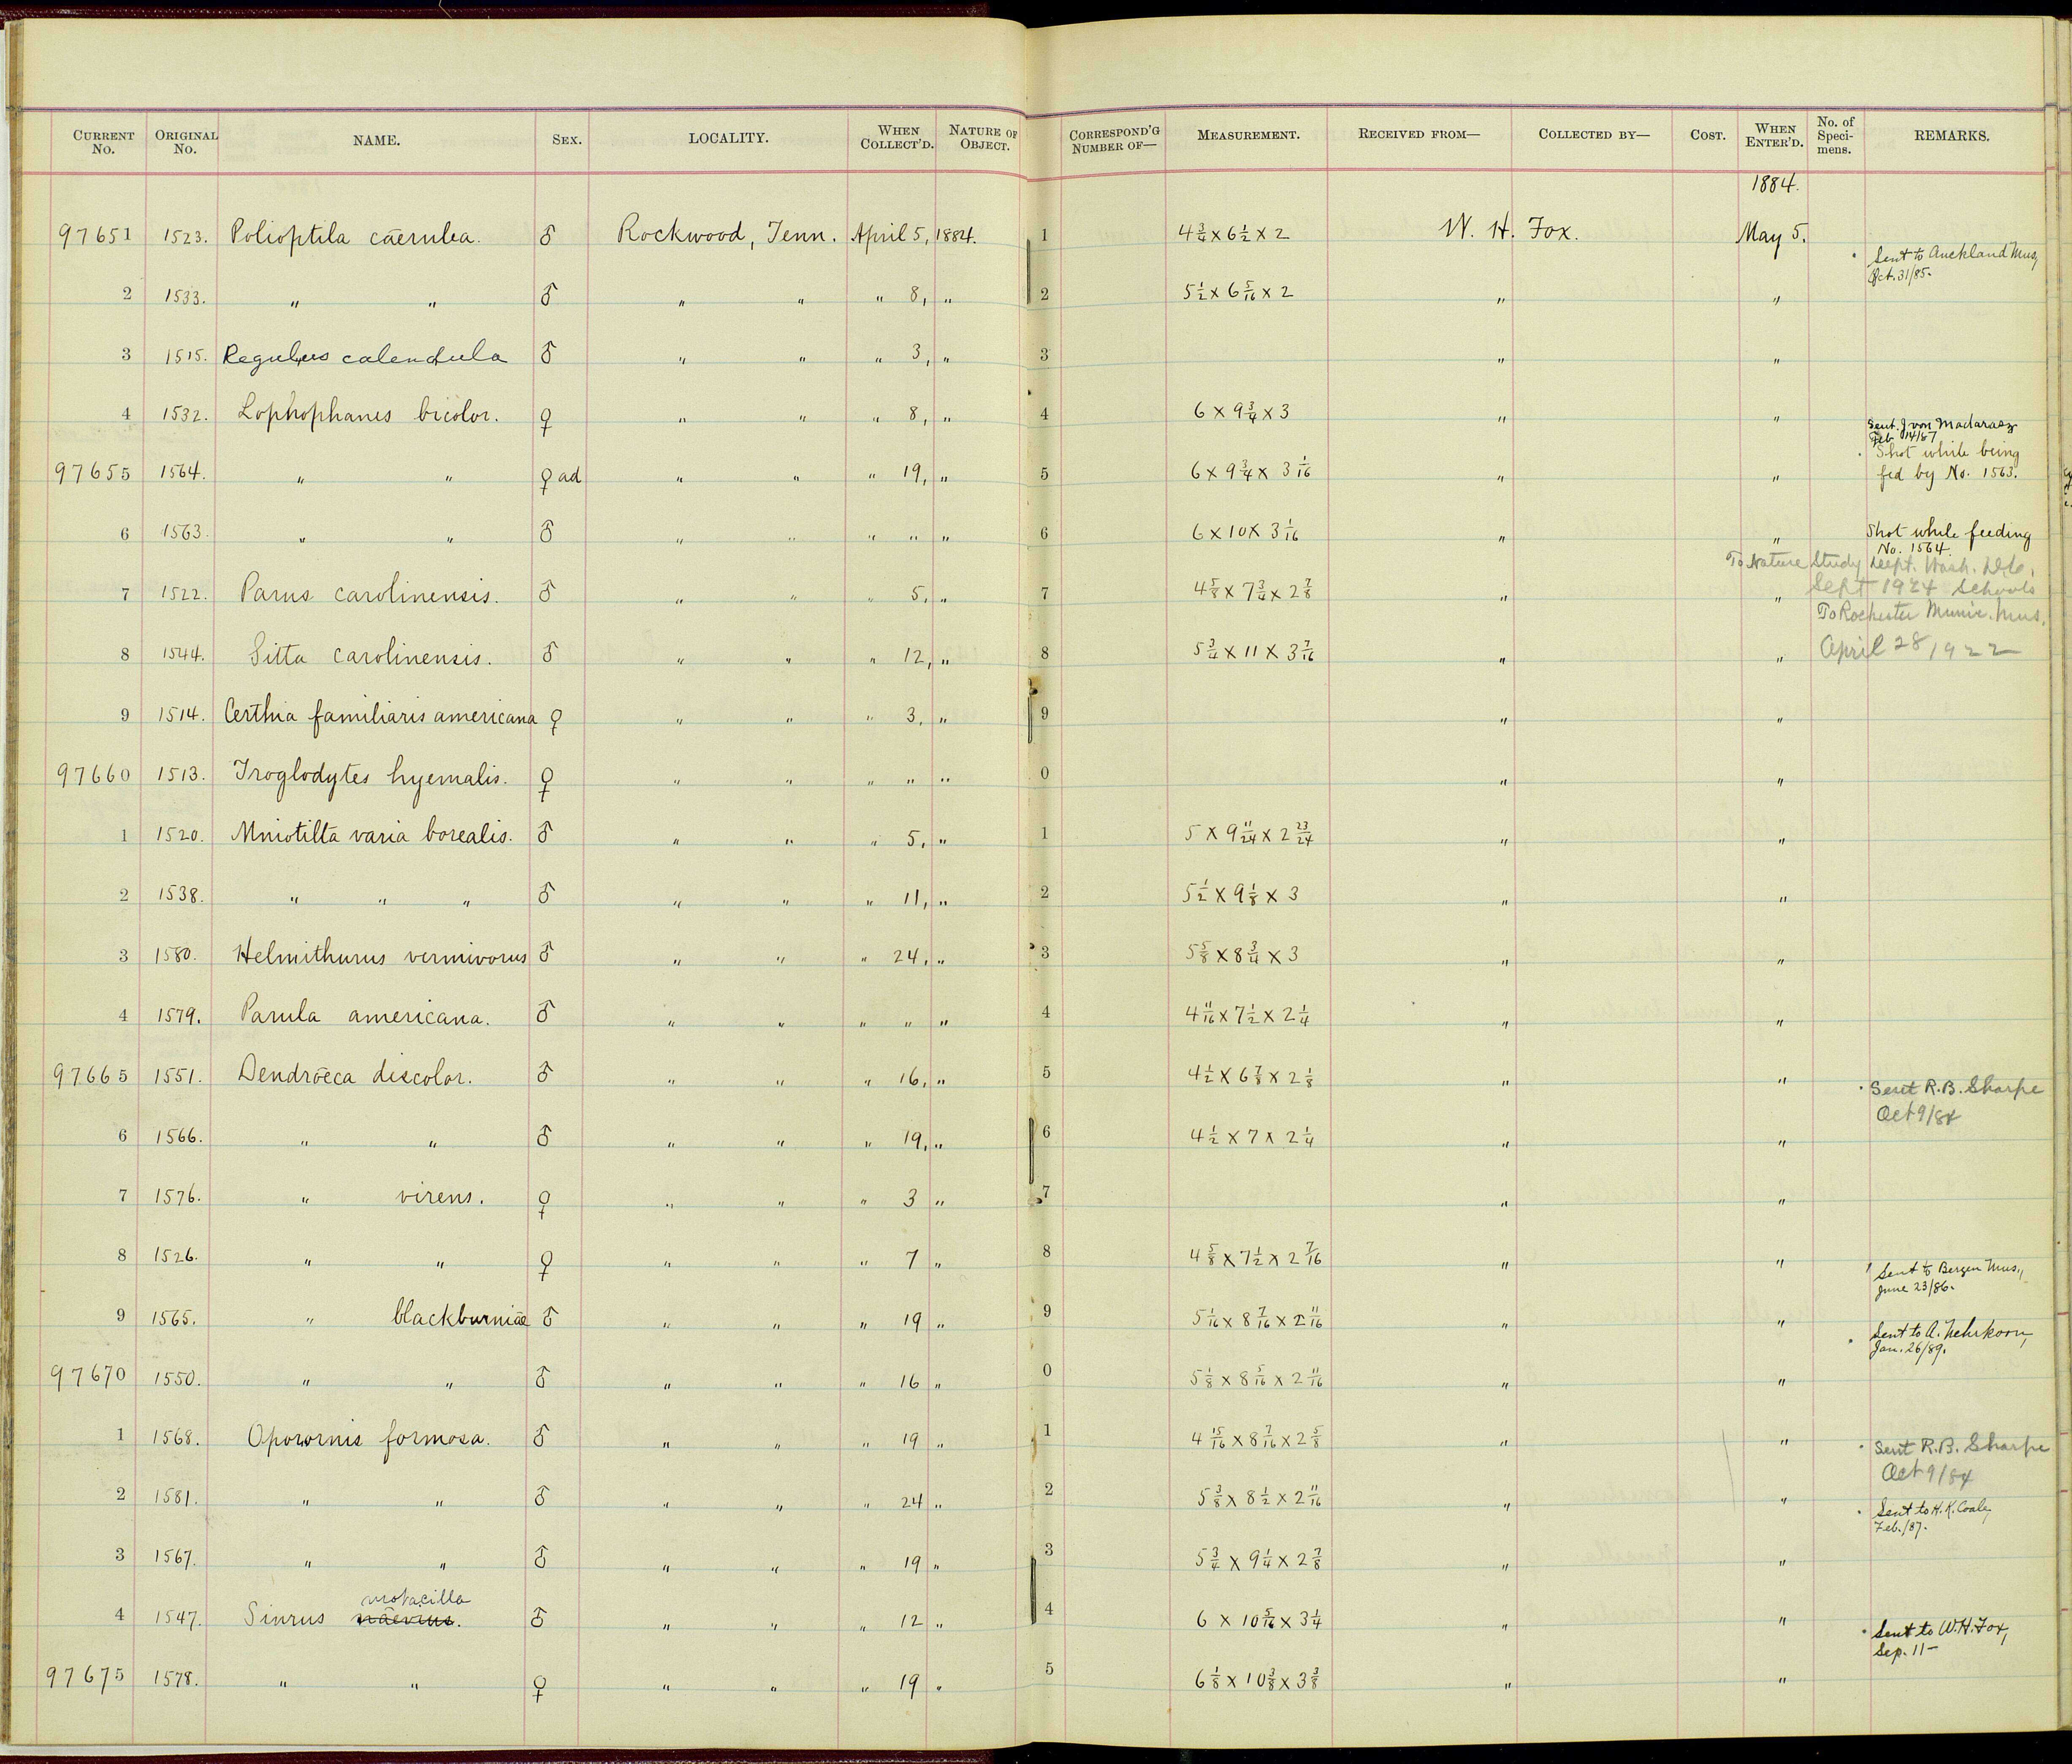 CURRENT No. ORIGINAL No. NAME. SEX. LOCALITY. WHEN COLLECT'D. NATURE OF OBJECT. CORRESPOND'G NUMBER OF— MEASUREMENT. RECEIVED FROM— COLLECTED BY— COST. WHEN ENTER'D. No. of Speci-mens. REMARKS.
1884.
97651 1523. Polioptila cāerulea. ♂ Rockwood, Tenn. April 5, 1884. 1 4 3/4 x 6 1/2 x 2 W. H. Fox. May 5.
Sent to Auckland Mus,
Oct. 31/85.
2 1533. " " ♂ " " " 8, " 2 5 1/2 x 6 5/16 x 2 " "
3 1515. Regulus calendula ♂ " " " 3, " 3 " "
4 1532. Lophophanes bicolor. ♀ " " " 8, " 4 6 x 9 3/4 x 3 " "
Sent. J. von Madarasz
Feb 14/87
Shot while being
97655 1564. " " ♀ ad " " " 19, " 5 6 x 9 3/4 x 3 1/16 " " fed by No. 1563.
6 1563. " " ♂ " " " " " 6 6 x 10 x 3 1/16 " " Shot while feeding
No. 1564.
To Nature Study Dept. Wash. D.C.,
7 1522. Parus carolinensis. ♂ " " " 5, " 7 4 5/8 x 7 3/4 x 2 7/8 " " Sept 1924 Schools
To Rochester Munic. Mus.
8 1544. Sitta carolinensis. ♂ " " " 12, " 8 5 3/4 x 11 x 3 7/16 " " April 28 1922
9 1514. Certhia familiaris americana ♀ " " " 3, " 9 " "
97660 1513. Troglodytes hyemalis. ♀ " " " " " 0 " "
1 1520. Mniotilta varia borealis. ♂ " " " 5, " 1 5 x 9 11/24 x 2 23/24 " "
2 1538. " " " ♂ " " " 11, " 2 5 1/2 x 9 1/8 x 3 " "
3 1580. Helmithurus vermivorus ♂ " " " 24, " 3 5 5/8 x 8 3/4 x 3 " "
4 1579. Parula americana. ♂ " " " " " 4 4 11/16 x 7 1/2 x 2 1/4 " "
97665 1551. Dendrœca discolor. ♂ " " " 16, " 5 4 1/2 x 6 7/8 x 2 1/8 " " Sent R. B. Sharpe
Oct 9/84
6 1566. " " ♂ " " " 19, " 6 4 1/2 x 7 x 2 1/4 " "
7 1576. " virens. ♀ " " " 3 " 7 " "
8 1526. " " ♀ " " " 7 " 8 4 5/8 x 7 1/2 x 2 7/16 " "
Sent to Bergen Mus.,
June 23/86.
9 1565. " blackburniæ ♂ " " " 19 " 9 5 1/16 x 8 7/16 x 2 11/16 " "
Sent to A. Nehrkorn,
Jan. 26/89.
97670 1550. " " ♂ " " " 16 " 0 5 1/8 x 8 5/16 x 2 11/16 " "
1 1568. Oporornis formosa. ♂ " " " 19 " 1 4 15/16 x 8 7/16 x 2 5/8 " " Sent R. B. Sharpe
Oct 9/84
2 1581. " " ♂ " " " 24 " 2 5 3/8 x 8 1/2 x 2 11/16 " "
Sent to H. K. Coale,
Feb. /87.
3 1567. " " ♂ " " " 19 " 3 5 3/4 x 9 1/4 x 2 7/8 " "
motacilla
4 1547. Siurus nāevius. ♂ " " " 12 " 4 6 x 10 5/16 x 3 1/4 " "
Sent to W. H. Fox,
Sep. 11—
97675 1578. " " ♀ " " " 19 " 5 6 1/8 x 10 3/8 x 3 3/8 " "